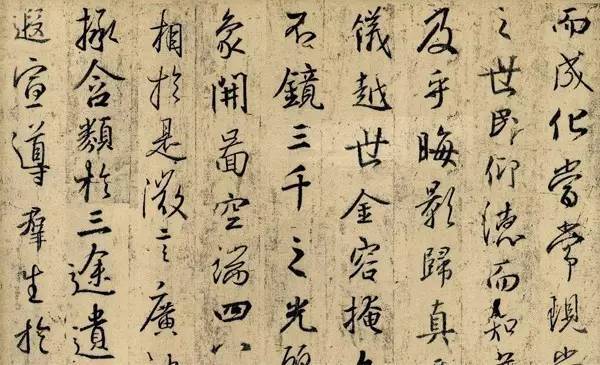 而成化當常現常
之世民仰德而知
及乎晦影歸真
儀越世金容掩
不鏡三千之光
象開圖空端四八
相於是微言廣
拯含類於三途遺
遐宣導羣生於